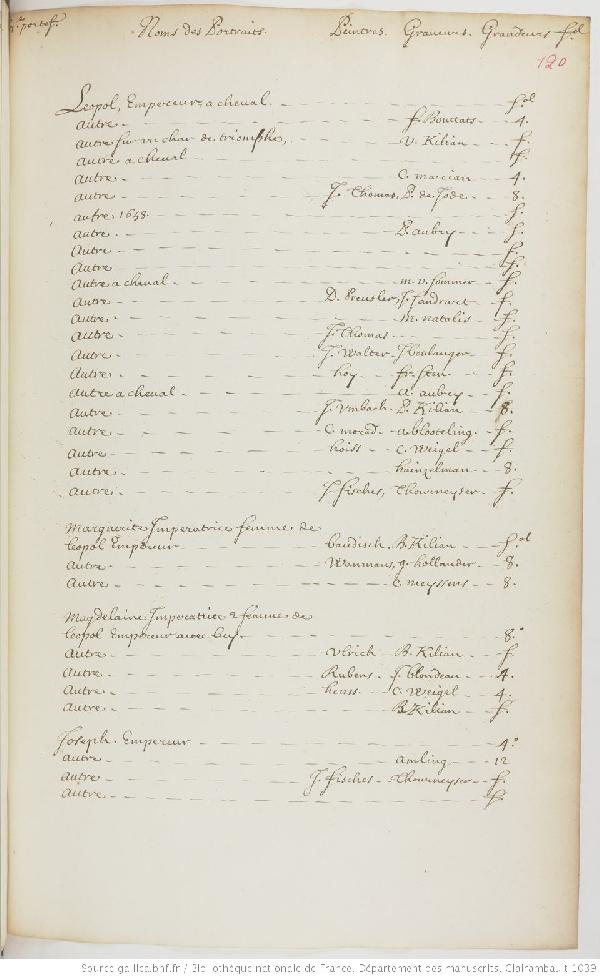 portef. Noms des Portraits. Peintres. Graveurs. Grandeurs fol
120
Leopol, Empereur, a cheval. fol
autre f. Bouttats 4.
autre sur un char de triomphe, v. Kilian f.
autre a cheval f.
autre C. marcian 4.
autre J. Thomas, P. de Jode 8.
autre 1658. f.
autre P. aubry f.
Autre f.
Autre f.
Autre a cheval m. v. sommer f.
autre D. Preusler, J. Sandrart f.
autre M. natalis f.
autre J. Thomas f.
autre J. Walter J boulanger f.
autre hoy fr. Steen f.
autre a cheval A. aubry f.
autre J. Vmbach P. Kilian 8.
autre C. morad a blooteling f.
autre heiss C. Weigel f.
autre hainzelman 8.
autre J fisches, Thourneyser f.
Marguerite Imperatrice femme de
leopol Empereur baudisch. B. Kilian fol
autre Wanmans, g. hollander 8.
autre C. meyssens 8.
Magdelaine Imperatrice 2 femme de
leopol Empereur avec luy. 8.
Autre Vlrich B. Kilian f.
Autre Rubens J. blondeau 4.
Autre heiss C. Weigel 4.
Autre B. Kilian f.
Joseph. Empereur 4.
autre amling 12
autre J. fisches Thourneyser f.
autre f.
Source gallica.bnf.fr / Bibliothèque nationale de France. Département des manuscrits. Clairambault 1039